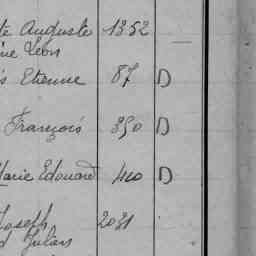 Auguste 1352
Léon
Etienne 87 D
François 350 D
Marie Edouard 410 D
Joseph 2031
Julien